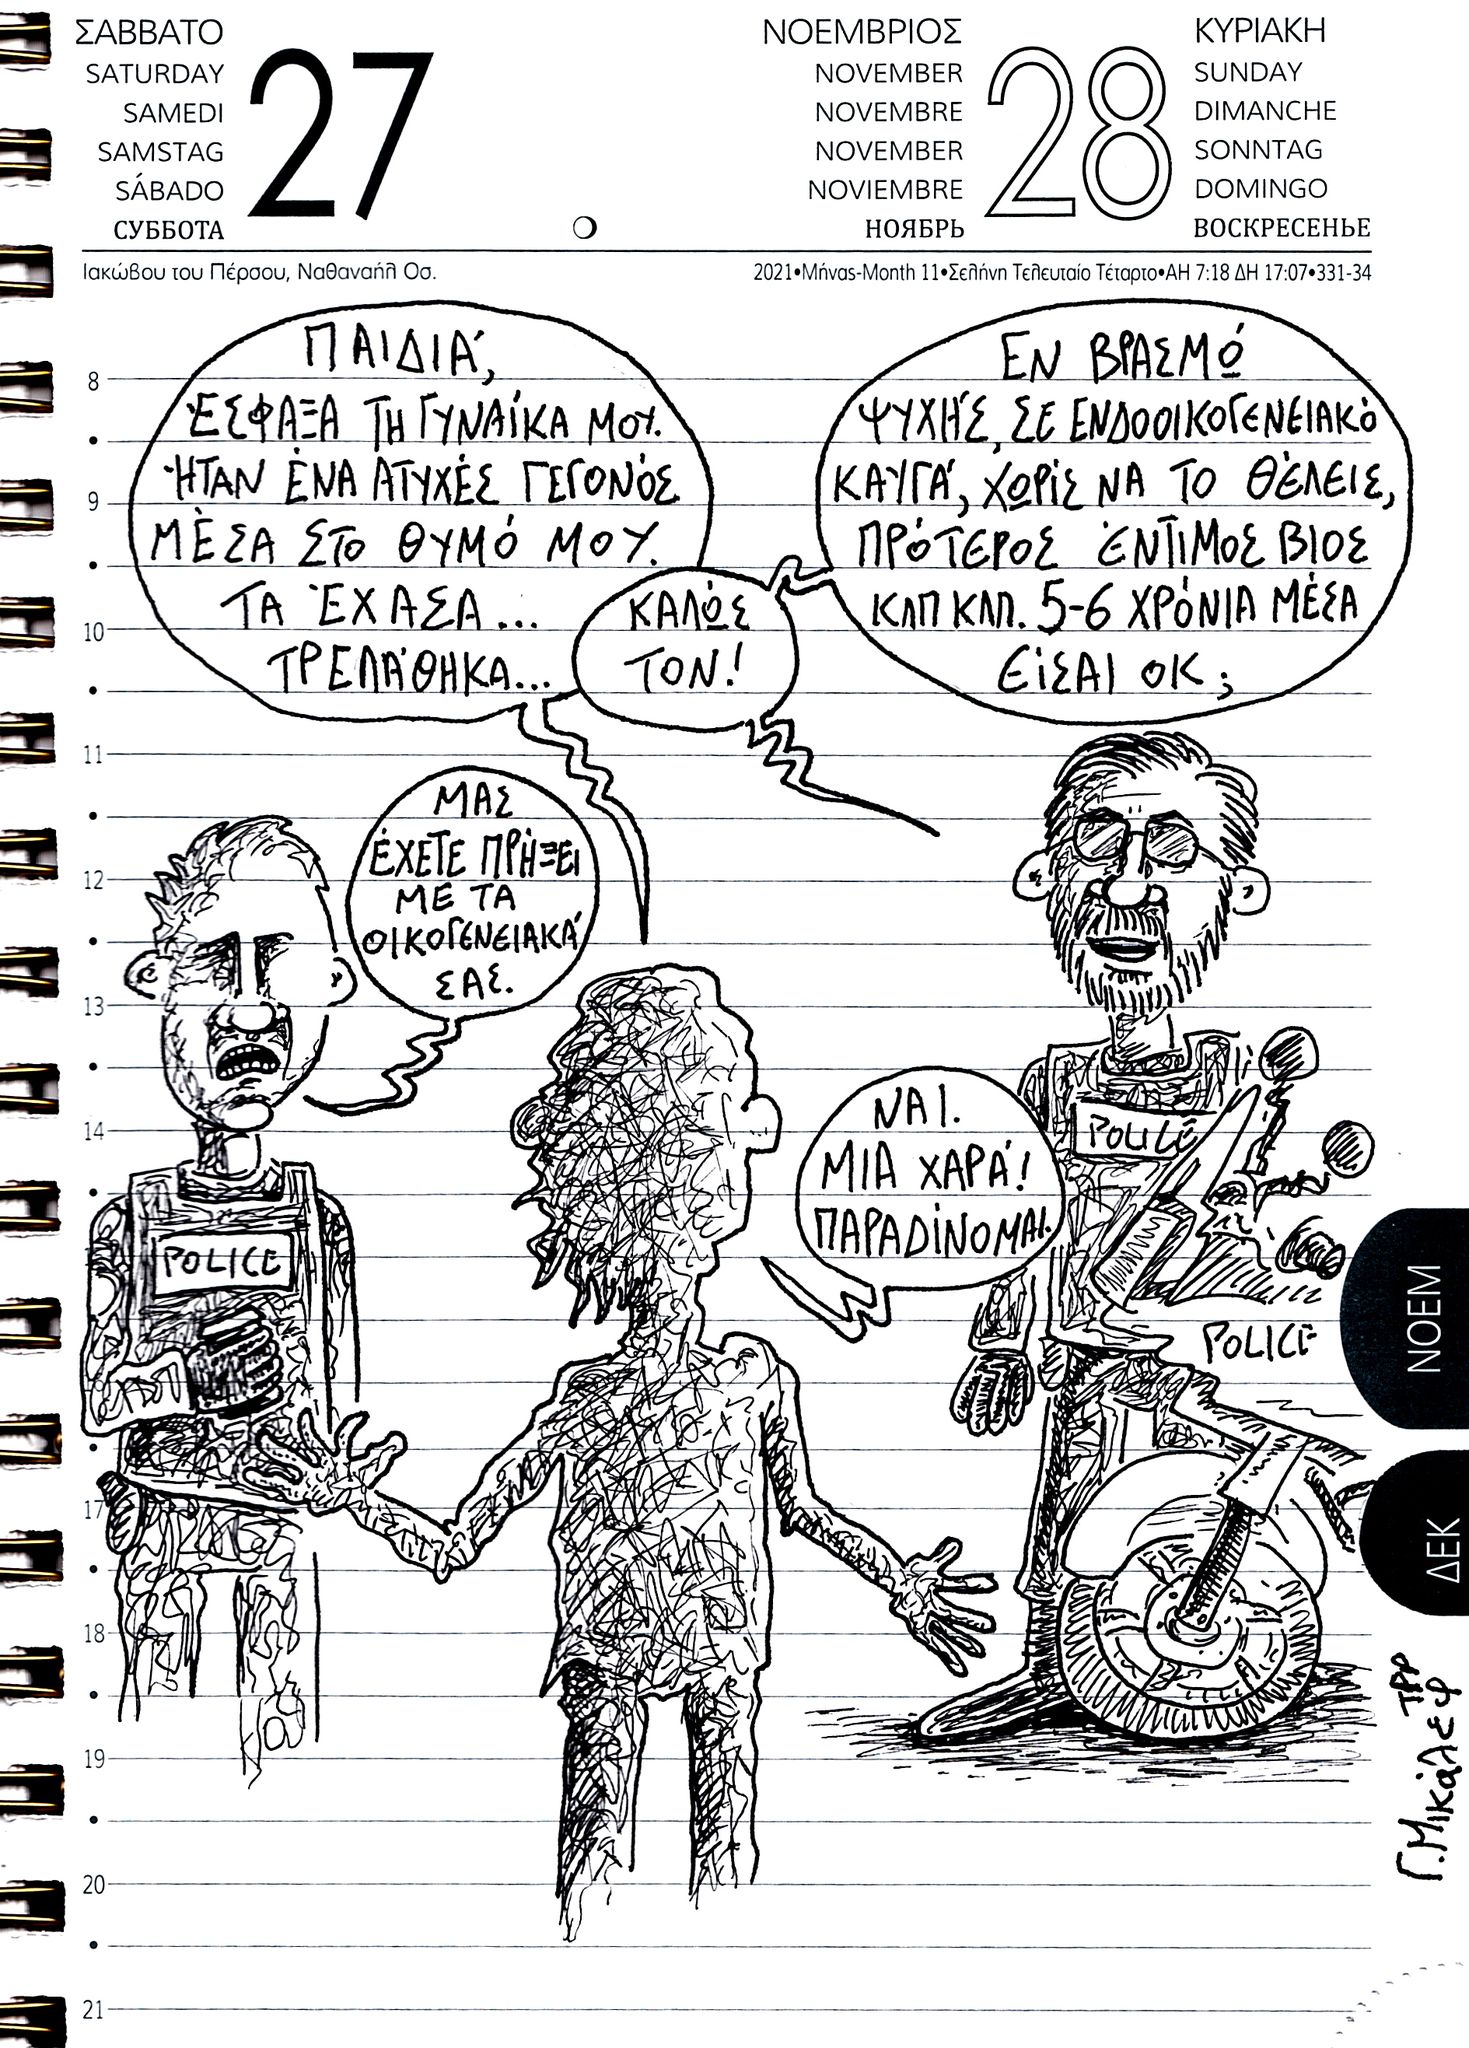 ΣΑΒΒΑΤΟ
SATURDAY
SAMEDI
SAMSTAG
SÁBADO
СУББОТА
27
ΝΟΕΜΒΡΙΟΣ
NOVEMBER
NOVEMBRE
NOVEMBER
NOVIEMBRE
НОЯБРЬ
28
ΚΥΡΙΑΚΗ
SUNDAY
DIMANCHE
SONNTAG
DOMINGO
ВОСКРЕСЕНЬЕ
Ιακώβου του Πέρσου, Ναθαναήλ Οσ.
2021•Μήνας-Month 11•Σελήνη Τελευταίο Τέταρτο•ΑΗ 7:18 ΔΗ 17:07•331-34
ΠΑΙΔΙΆ,
ΈΣΦΑΞΑ ΤΗ ΓΥΝΑΊΚΑ ΜΟΥ.
ΉΤΑΝ ΈΝΑ ΑΤΥΧΈΣ ΓΕΓΟΝΌΣ
ΜΈΣΑ ΣΤΟ ΘΥΜΌ ΜΟΥ.
ΤΑ ΈΧΑΣΑ...
ΤΡΕΛΆΘΗΚΑ...
ΚΑΛΏΣ
ΤΟΝ!
ΕΝ ΒΡΑΣΜΏ
ΨΥΧΉΣ, ΣΕ ΕΝΔΟΟΙΚΟΓΕΝΕΙΑΚΌ
ΚΑΥΓΆ, ΧΩΡΊΣ ΝΑ ΤΟ ΘΈΛΕΙΣ,
ΠΡΌΤΕΡΟΣ ΈΝΤΙΜΟΣ ΒΙΟΣ
ΚΛΠ ΚΛΠ. 5-6 ΧΡΌΝΙΑ ΜΈΣΑ
ΕΊΣΑΙ ΟΚ;
ΜΑΣ
ΈΧΕΤΕ ΠΡΉΞΕΙ
ΜΕ ΤΑ
ΟΙΚΟΓΕΝΕΙΑΚΆ
ΣΑΣ.
ΝΑΙ.
ΜΙΑ ΧΑΡΆ!
ΠΑΡΑΔΊΝΟΜΑΙ.
POLICE
POLICE
POLICE
8
9
10
11
12
13
14
17
18
19
20
21
ΝΟΕΜ
ΔΕΚ